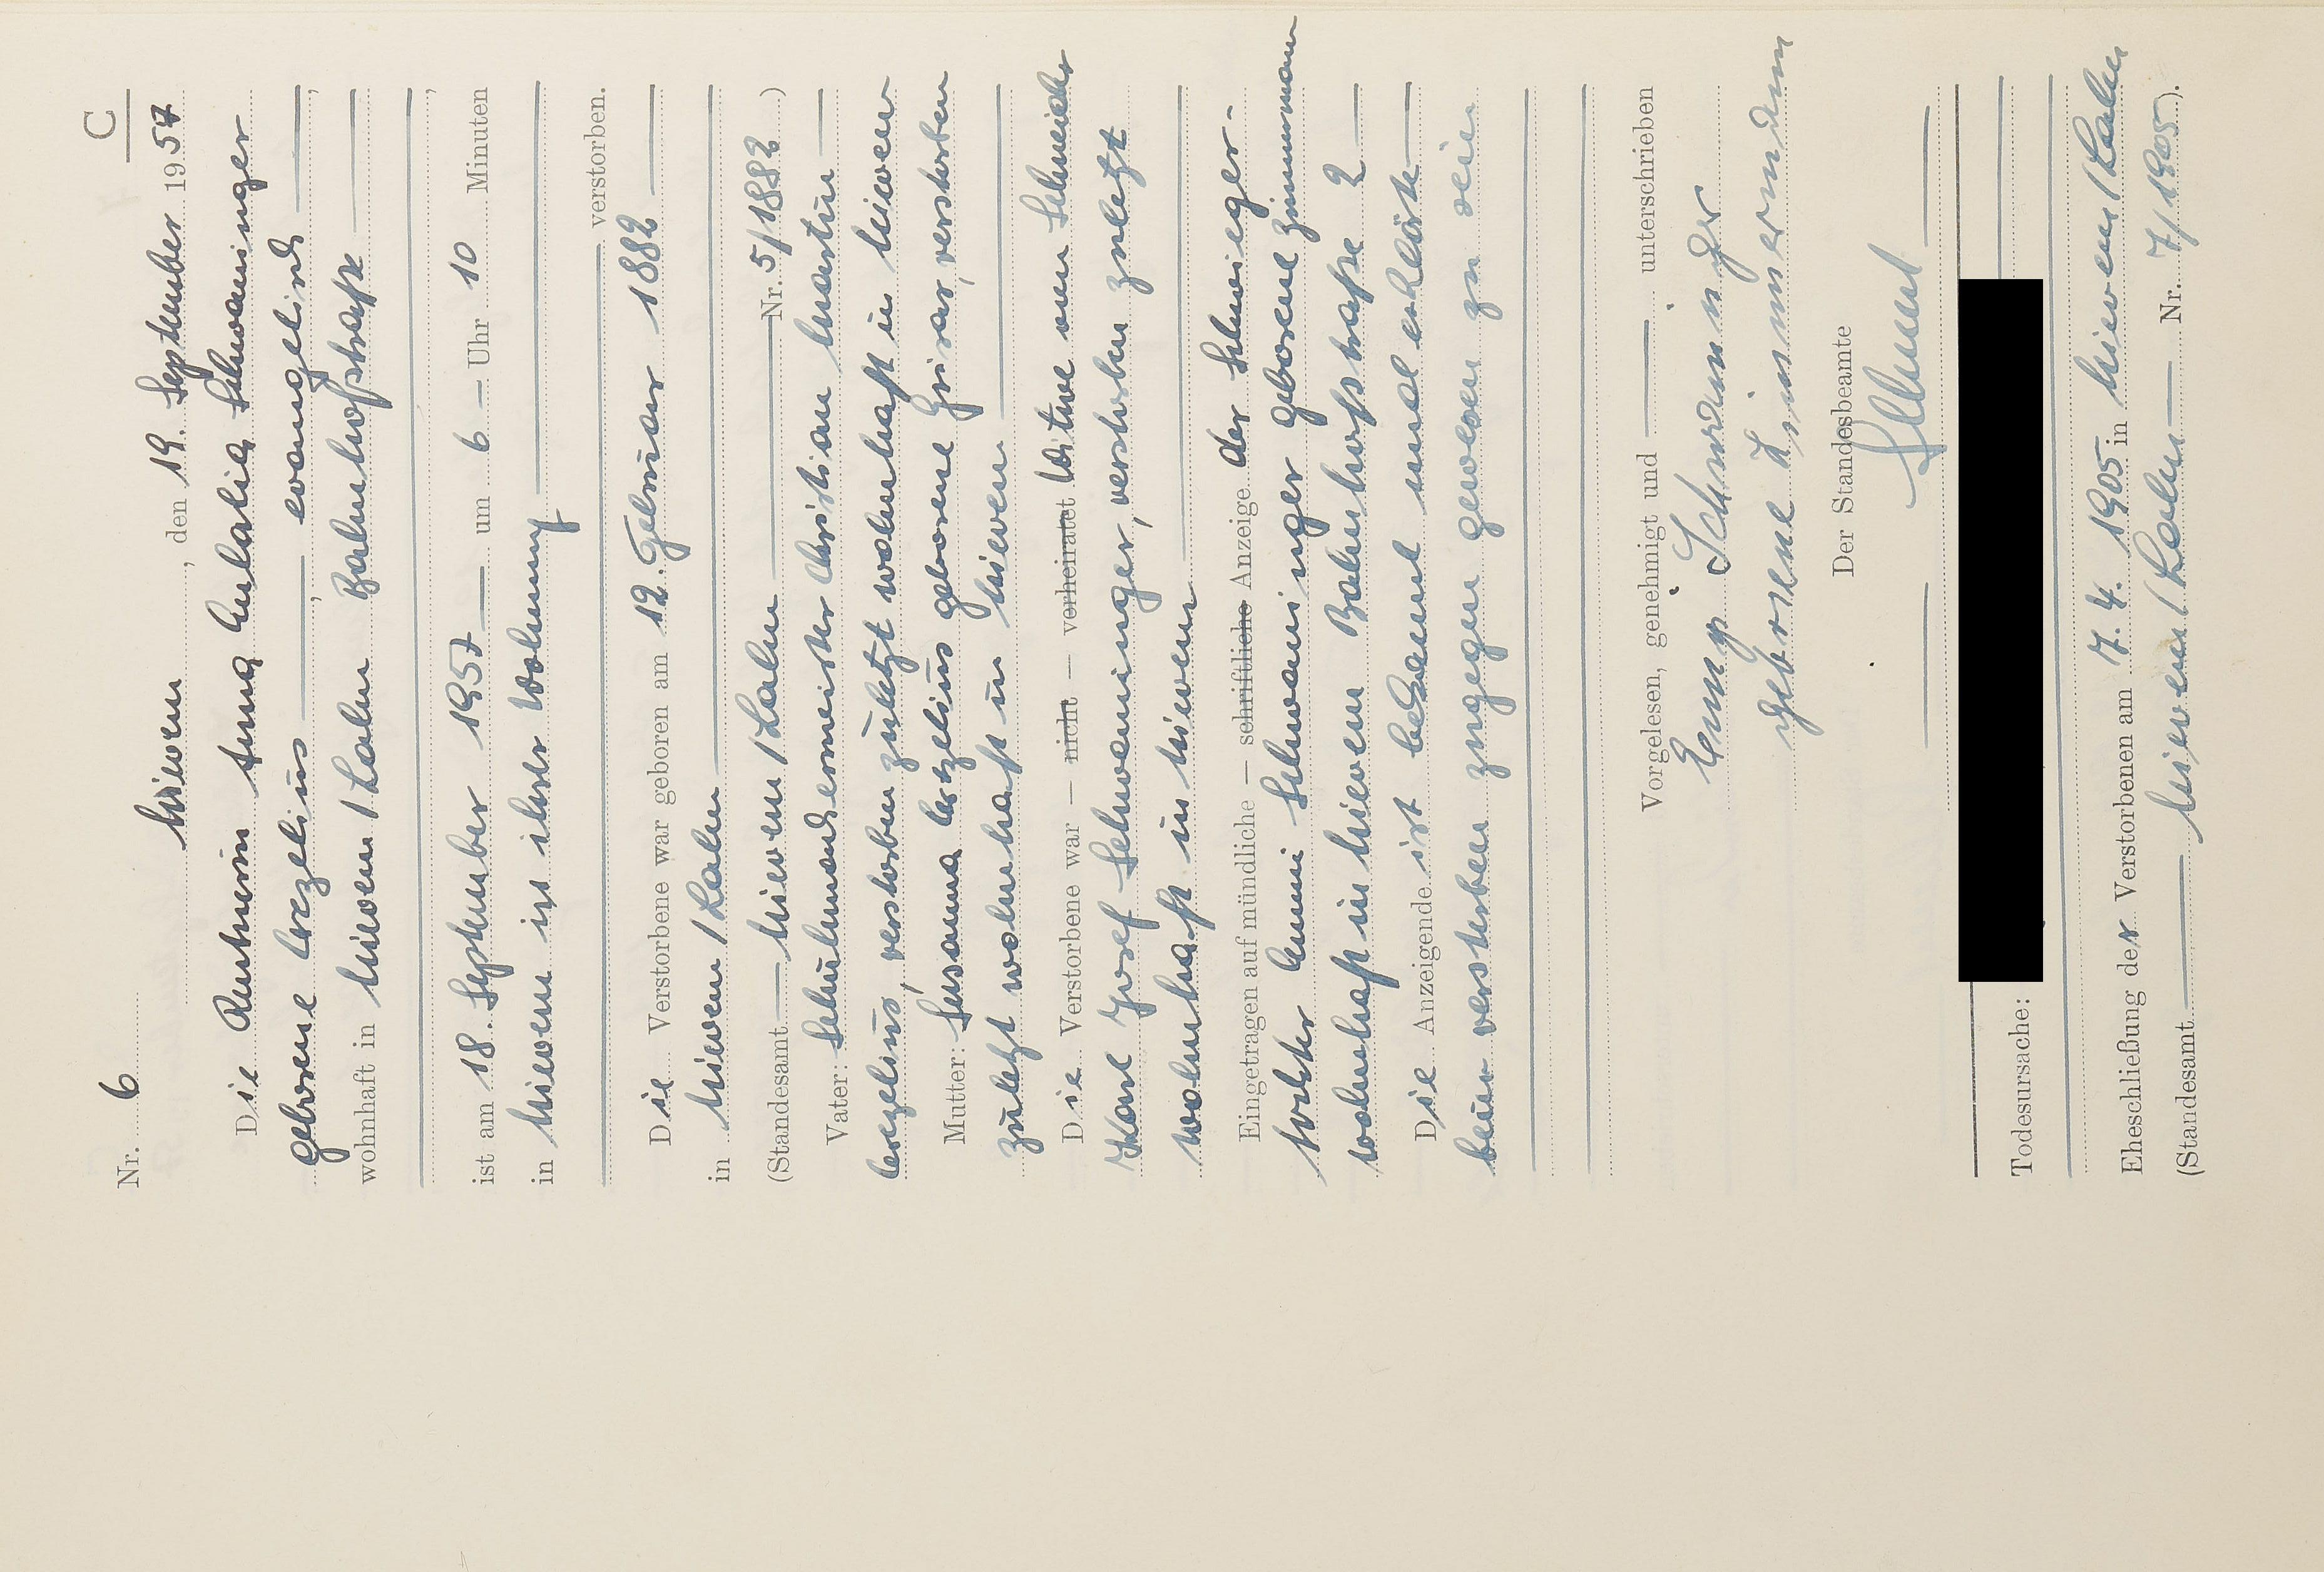 C
Nr. 6
Nievern, den 19. September 1957
Die Rentnerin Anna Eulalia Schwaninger
geborene Gezelius —, — evangelisch —,
wohnhaft in Nievern / Lahn Bahnhofstraße —
— ,
ist am 18. September 1957 — um 6 — Uhr 10 Minuten
in Nievern in ihrer Wohnung —
— verstorben.
Die Verstorbene war geboren am 12. Februar 1882 —
in Nievern / Lahn —
(Standesamt — Nievern / Lahn — Nr. 5/1882)
Vater: Schuhmachermeister Christian Martin —
Gezelius, verstorben zuletzt wohnhaft in Nievern
Mutter: Susanna Gezelius geborene, verstorben
zuletzt wohnhaft in Nievern —
Die Verstorbene war — nicht — verheiratet Witwe vom Schneider
Karl Josef Schwaninger, verstorben zuletzt
wohnhaft in Nievern —
Eingetragen auf mündliche — schriftliche Anzeige der Schwieger-
tochter Emmi Schwaninger geborene Zimmermann
wohnhaft in Nievern Bahnhofstraße 2 —
Die Anzeigende ist bekannt und erklärte —
beim versterben zugegen gewesen zu sein
Vorgelesen, genehmigt und — unterschrieben
Schwaninger
geborene Zimmermann
Der Standesbeamte
Todesursache:
Eheschließung der Verstorbenen am 7. 4. 1905 in Nievern / Lahn
(Standesamt — Nievern / Lahn — Nr. 7/1905).